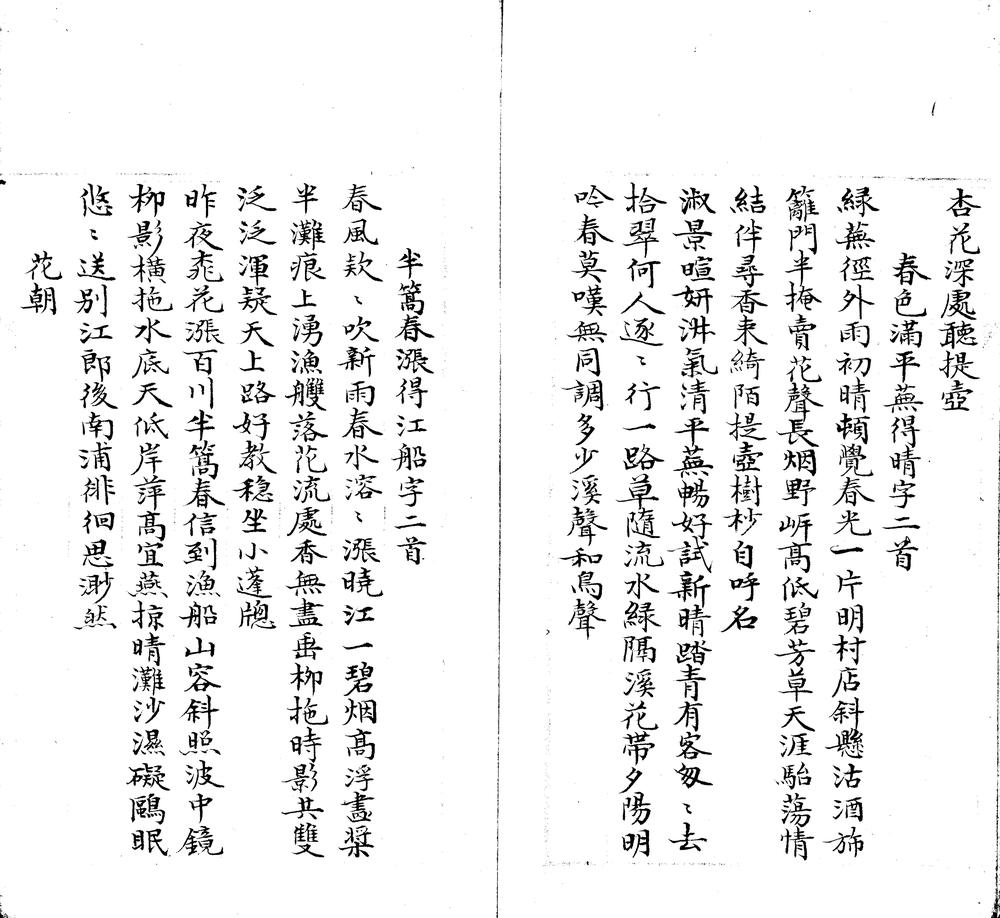 杏花深處聽提壺
春色滿平蕪得晴字二首
緑蕪徑外雨初晴頓覺春光一片明村店斜懸沽酒斾
籬門半掩賣花聲長烟野岍髙低碧芳草天涯駘蕩情
結伴尋香来綺陌提壺樹杪自呼名
淑景暄妍淑氣清平蕪暢好試新晴踏青有客匆〻去
拾翠何人逐〻行一路草隨流水緑隔溪花帶夕陽明
吟春莫嘆無同調多少溪聲和鳥聲
半篙春漲得江船字二首
春風欵〻吹新雨春水溶〻漲曉江一碧烟髙浮畫槳
半灘痕上湧漁艭落花流處香無盡垂栁拖時影共雙
泛泛渾疑天上路好教穏坐小蓬牕
昨夜桃花漲百川半篙春信到漁船山容斜照波中鏡
栁影橫拖水底天低岸萍髙宜燕掠晴灘沙濕礙鷗眠
悠〻送别江郎後南浦徘徊思渺然
花朝